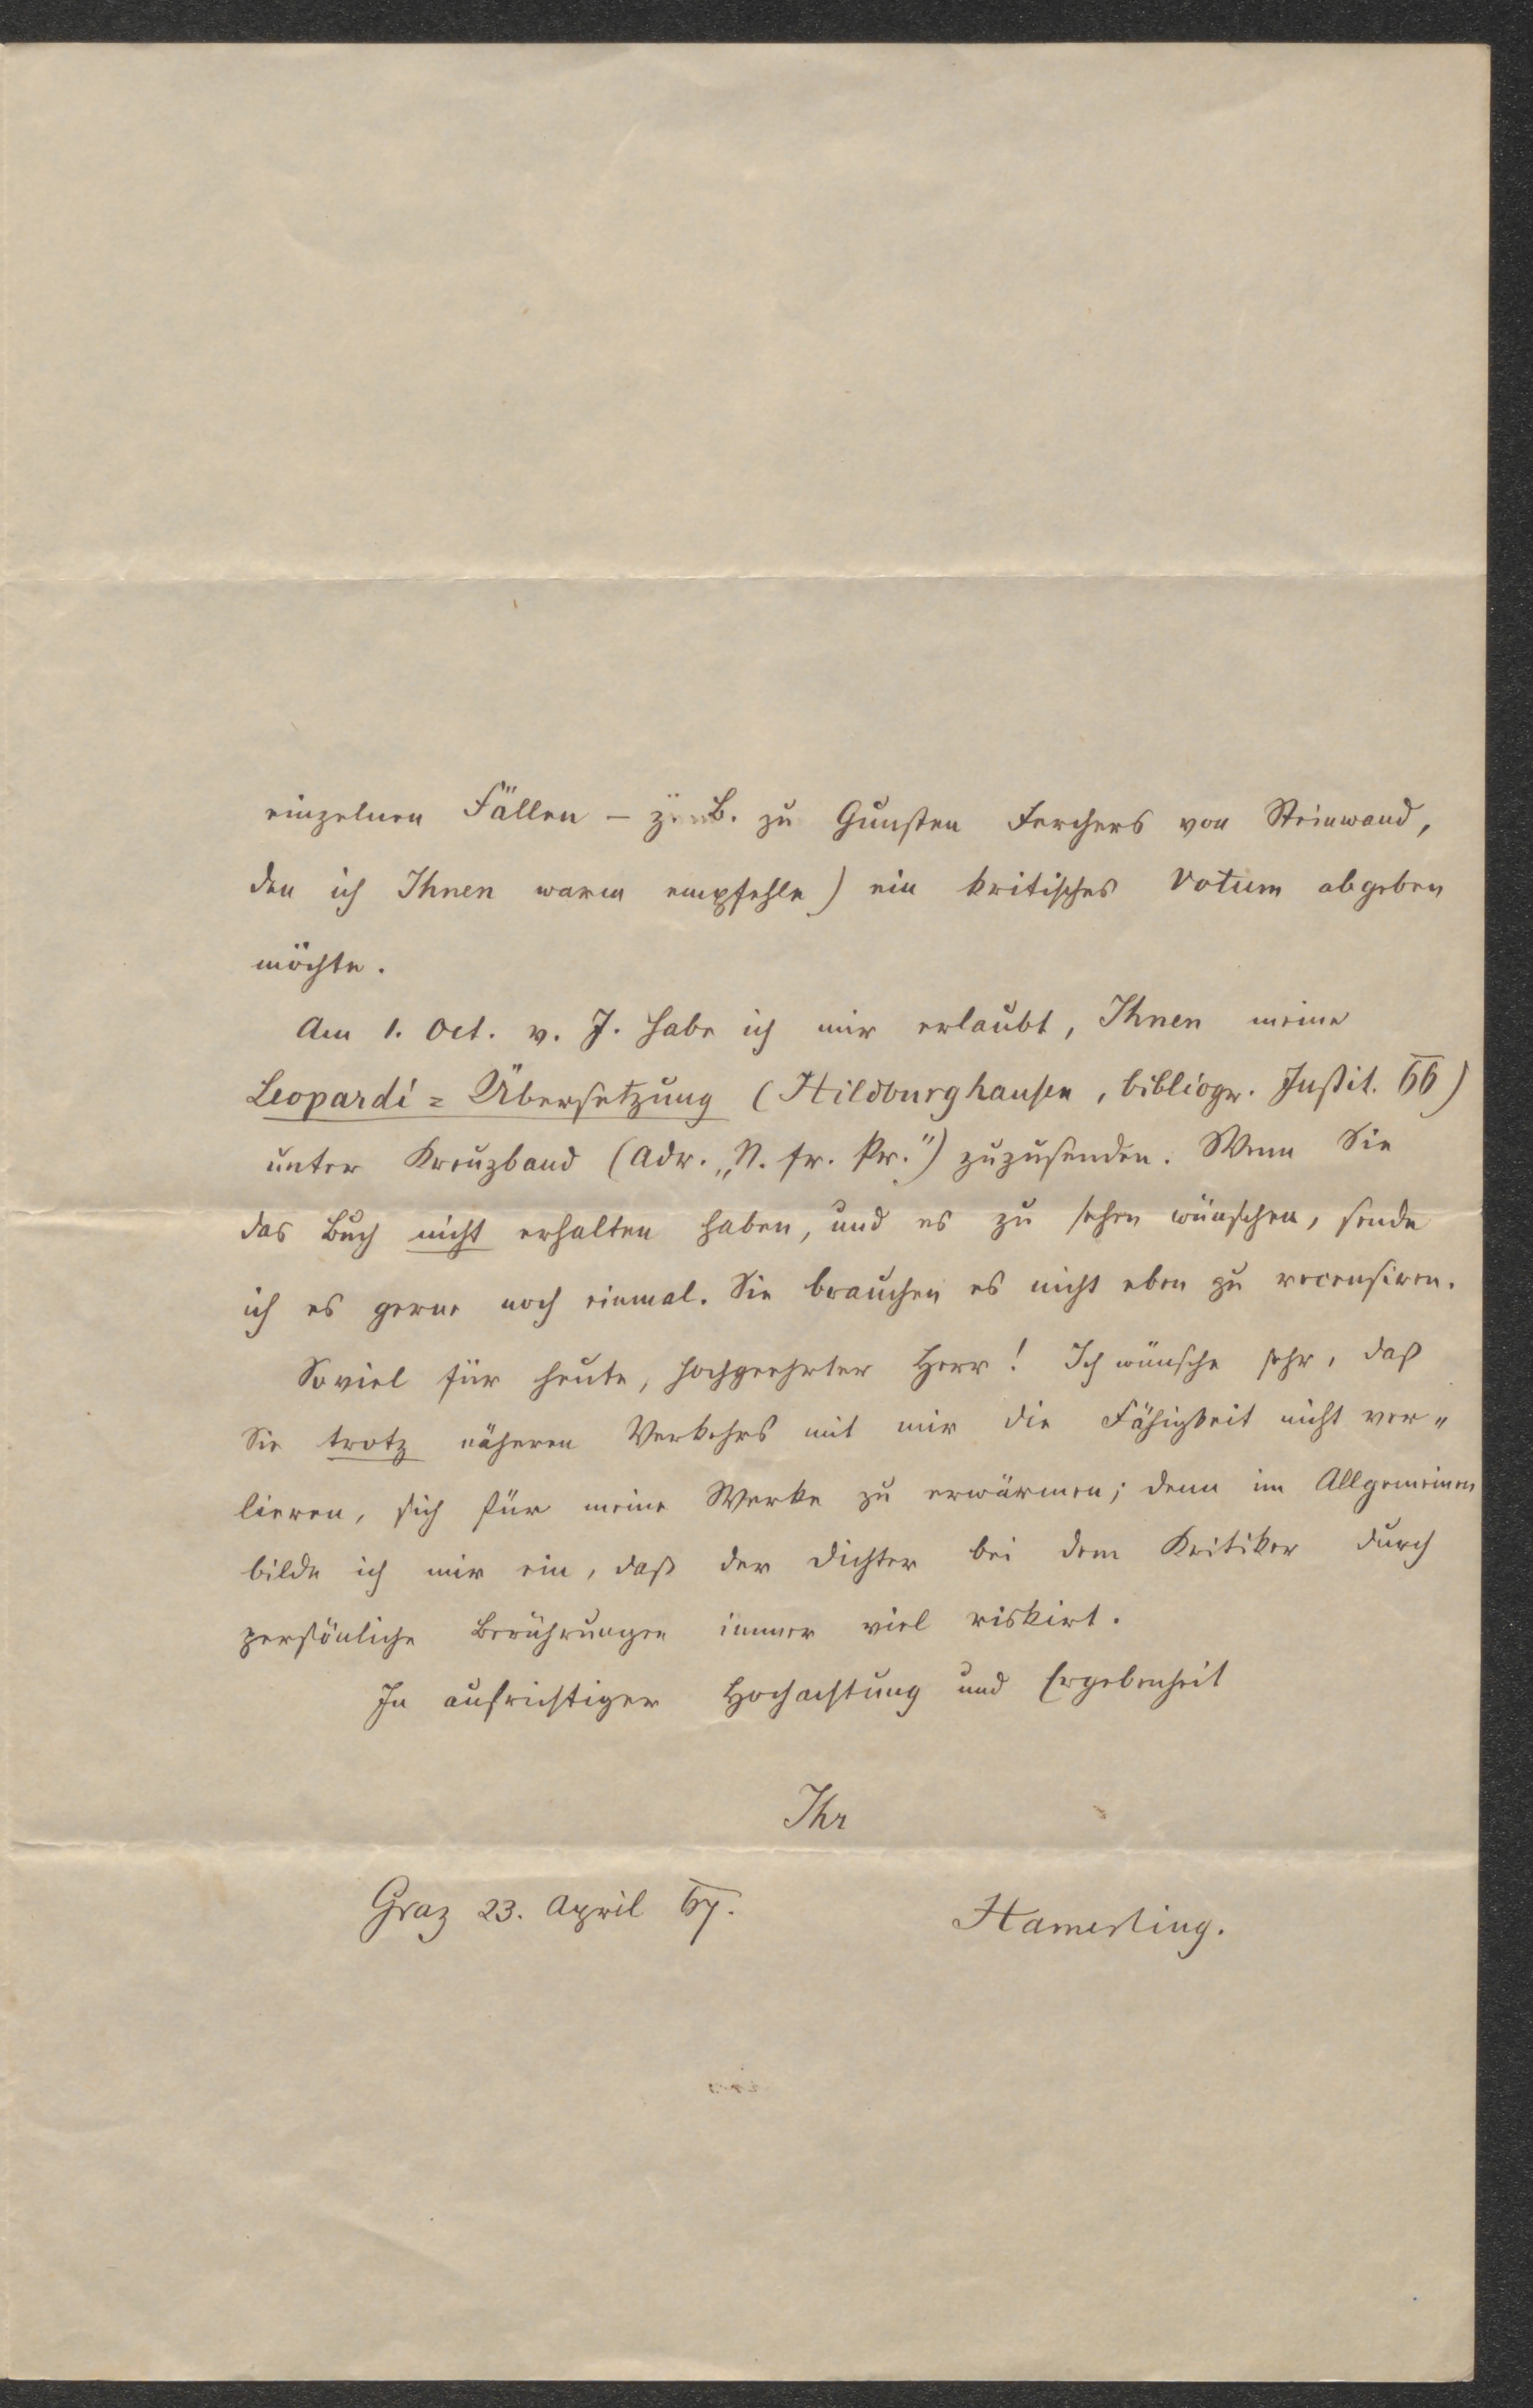 einzelnen Fällen – z. B. zu Gunsten Ferchers von Steinwand,
den ich Ihnen warm empfehle) ein kritisches Votum abgeben
möchte.
Am 1. Oct. v. J. habe ich mir erlaubt, Ihnen meine
Leopardi=Übersetzung (Hildburghausen, bibliogr. Instit. 66)
unter Kreuzband (Adr. „N. fr. Pr.") zuzusenden. Wenn Sie
das Buch nicht erhalten haben, und es zu sehen wünschen, sende
ich es gerne noch einmal. Sie brauchen es nicht eben zu recensiren.
Soviel für heute, hochgeehrter Herr! Ich wünsche sehr, daß
Sie trotz näheren Verkehrs mit mir die Fähigkeit nicht ver„
lieren, sich für meine Werke zu erwärmen; denn im Allgemeinen
bilde ich mir ein, daß der Dichter bei dem Kritiker durch
persönliche Berührungen immer viel riskirt.
In aufrichtiger Hochachtung und Ergebenheit
Ihr
Graz 23. April 67.
Hamerling.